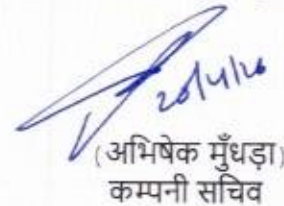 20/4/26
(अभिषेक मुँधड़ा)
कम्पनी सचिव